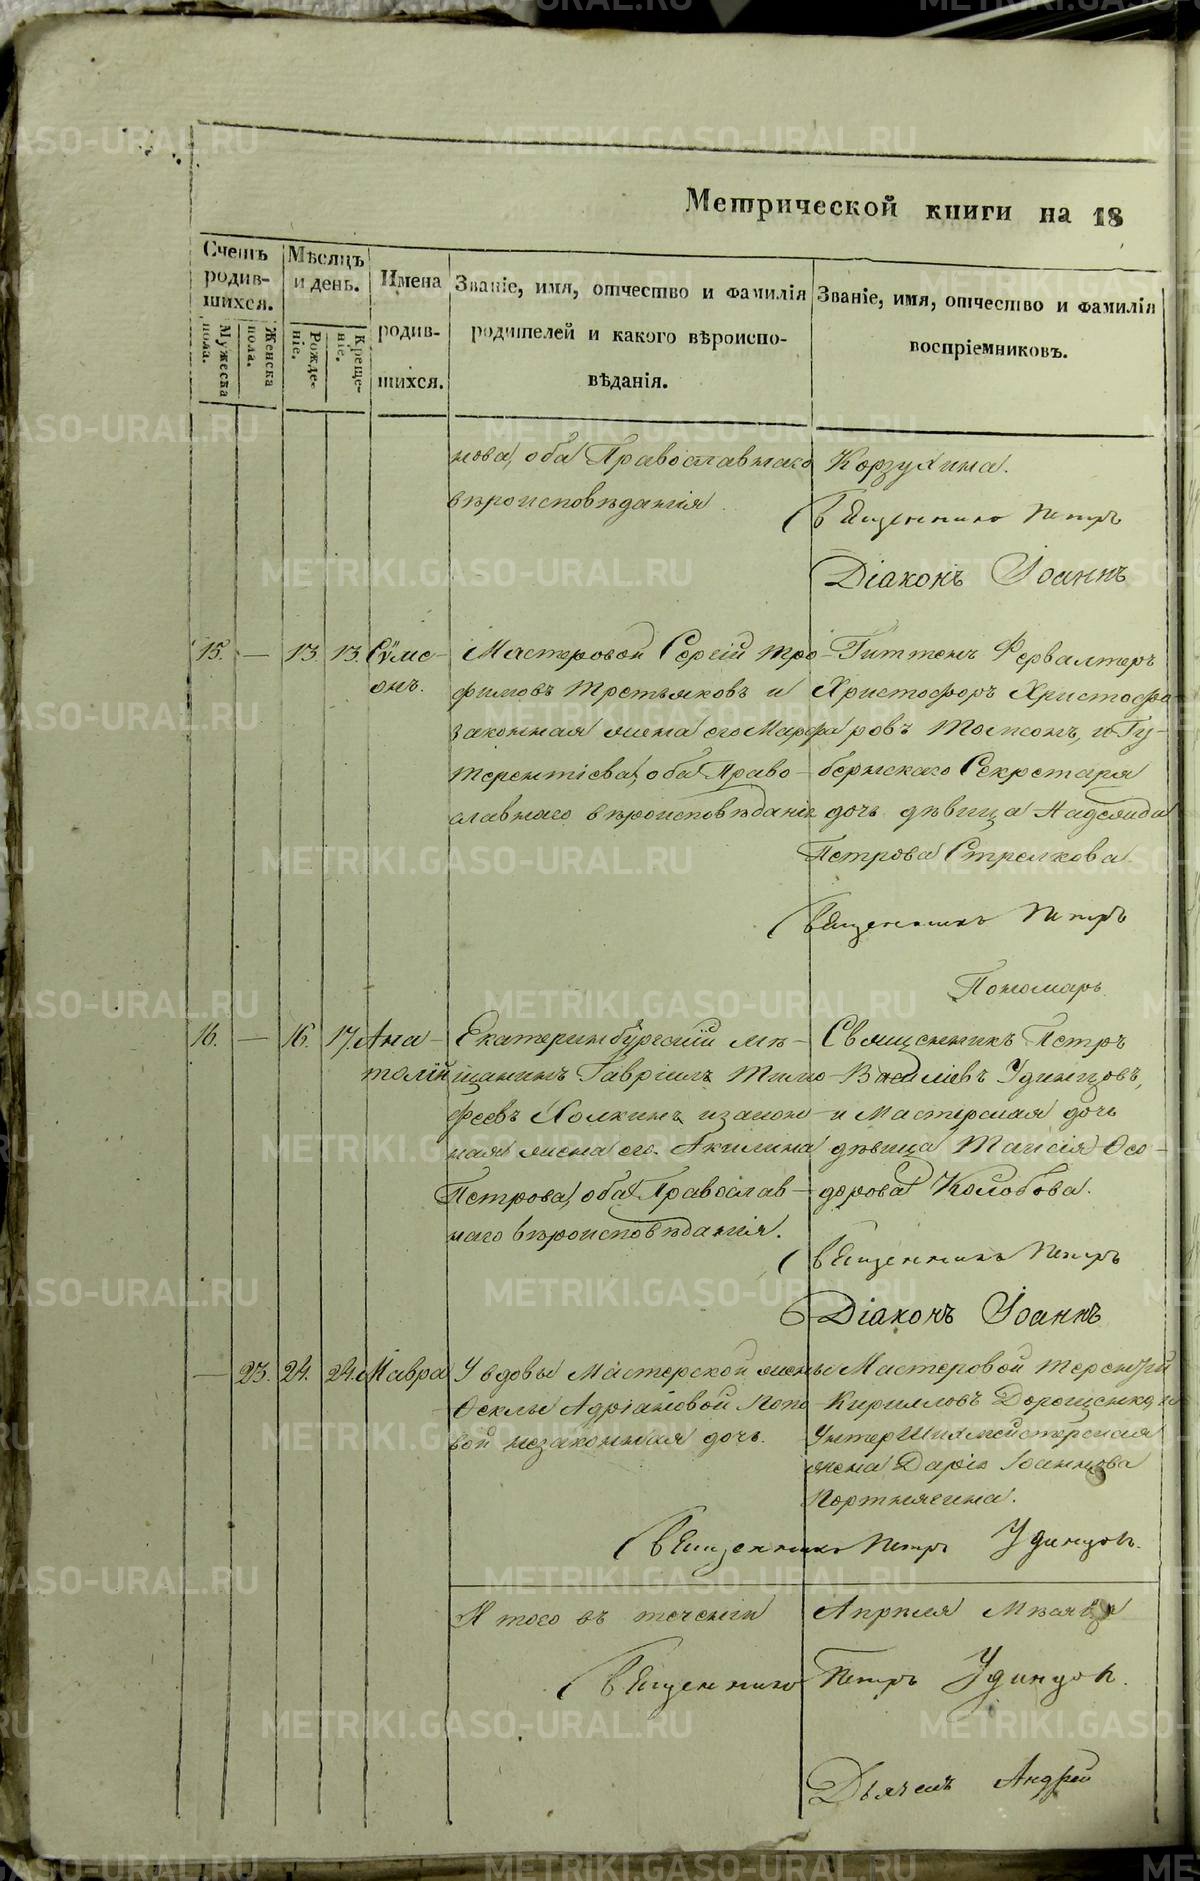 Метрической книги на 18
Счетъ родив-шихся.
Мужеска пола.
Женска пола.
Мѣсяцъ и день.
Рожде-ніе.
Креще-ніе.
Имена родив-шихся.
Званіе, имя, отчество и фамилія
родителей и какого вѣроиспо-
вѣданія.
Званіе, имя, отчество и фамилія
воспріемниковъ.
нова, оба Православнаго
вѣроисповѣданія.
Корзухина.
Священникъ Петръ
Діаконъ Іоаннъ
15. — 13. 13. Сѵме-
онъ.
Мастеровой Сергій Тро-
фимовъ Третьяковъ и
законная жена его Марфа
Терентіева, оба Право-
славнаго вѣроисповѣданія
Гиттенъ Фервалтеръ
Христофоръ Христофо-
ровъ Томсонъ, и Гу-
бернскаго Секретаря
дочь дѣвица Надежда
Петрова Стрелкова.
Священникъ Петръ
Пономарь
16. — 16. 17. Ана-
толій
Екатеринбургскій мѣ-
щанинъ Гавріилъ Тимо-
феевъ Холкинъ, и закон-
ная жена его Акилина
Петрова, оба Православ-
наго вѣроисповѣданія.
Священникъ Петръ
Василіевъ Удинцовъ,
и Мастерская дочь
дѣвица Таисія Ѳео-
дорова Колобова.
Священникъ Петръ
Діаконъ Іоаннъ
— 23. 24. 24. Мавра
У вдовы Мастерской жены
Ѳеклы Адріановой Попо-
вой незаконная дочь.
Мастеровой Терентій
Кирилловъ
Унтеръ Шихмейстерская
жена Дарія Іоаннова
Портнягина.
Священникъ Петръ Удинцовъ.
Итого въ теченіи Апрѣля Мѣсяца
Священникъ Петръ Удинцовъ.
Дьячекъ Андрей
METRIKI.GASO-URAL.RU